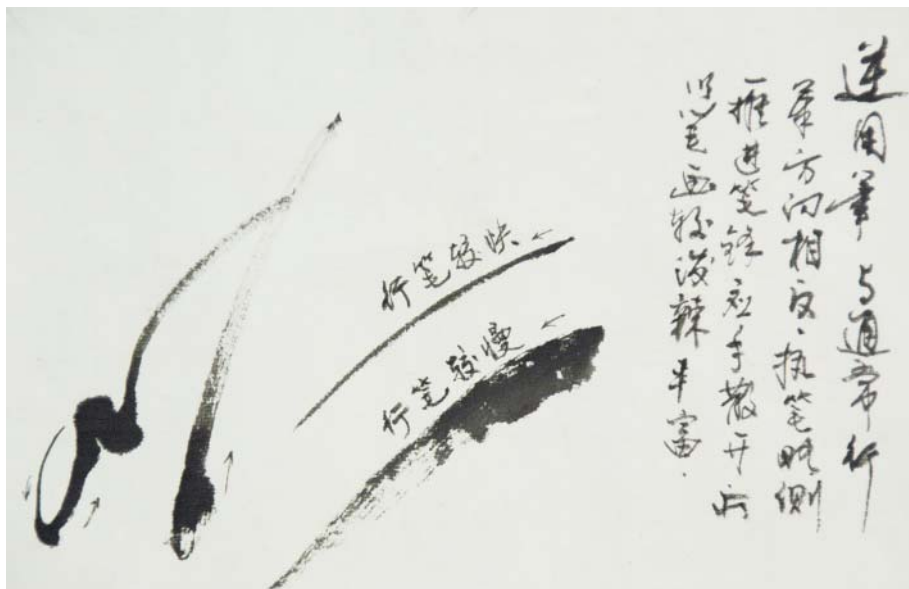 逆用筆 与通常行
筆方向相反、执笔略侧
推进笔锋应手散开所
以笔画较泼辣丰富.
行笔较快
行笔较慢